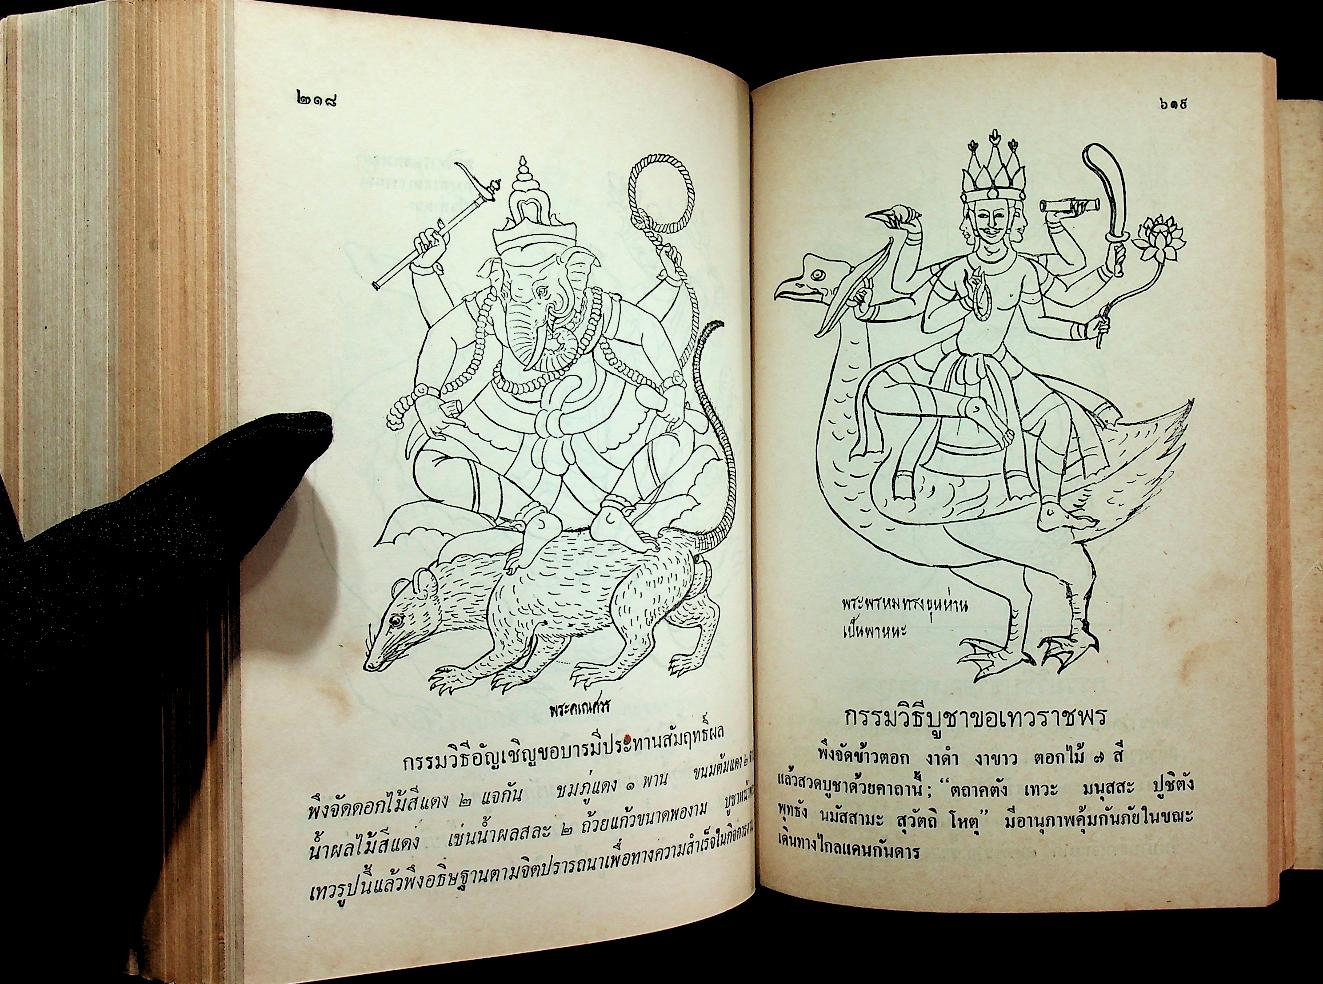 ๒๑๘
พระคเณศวร
กรรมวิธีอัญเชิญขอบารมีประทานสัมฤทธิ์ผล
พึงจัดดอกไม้สีแดง ๒ แจกัน ชมภู่แดง ๑ พาน ขนมต้มแดง ๒
น้ำผลไม้สีแดง เช่นน้ำผลสละ ๒ ถ้วยแก้วขนาดพองาม บูชาหน้า
เทวรูปนี้แล้วพึงอธิษฐานตามจิตปรารถนาเพื่อทางความสำเร็จในกิจการงาน
๖๑๙
พระพรหมทรงขุนห่าน
เป็นพาหนะ
กรรมวิธีบูชาขอเทวราชพร
พึงจัดข้าวตอก งาดำ งาขาว ดอกไม้ ๗ สี
แล้วสวดบูชาด้วยคาถานี้; “ตถาคตัง เทวะ มนุสสะ ปูชิตัง
พุทธัง นมัสสามะ สุวัตถิ โหตุ” มีอานุภาพคุ้มกันภัยในขณะ
เดินทางไกลแดนกันดาร